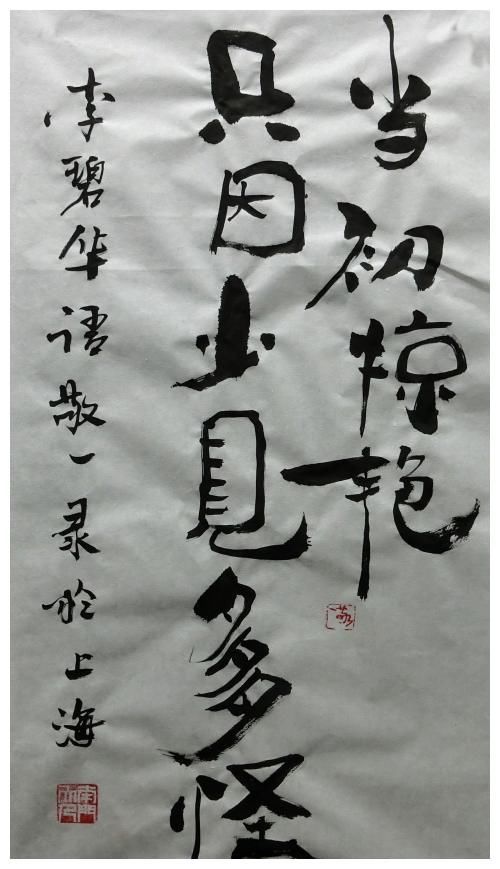 当初惊艳
只因少見多怪
李碧华语敬一录於上海